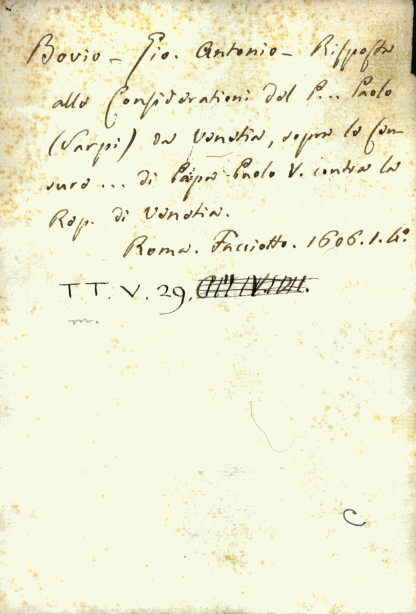 Bovio - Gio. Antonio - Risposta
alle Considerationi del P... Paolo
(Sarpi) da Venetia, sopra le Cen-
sure ... di Papa Paolo V. contra la
Rep. di Venetia.
Roma. Facciotto. 1606. 1. 4.º
T T. V. 29.
m.
C